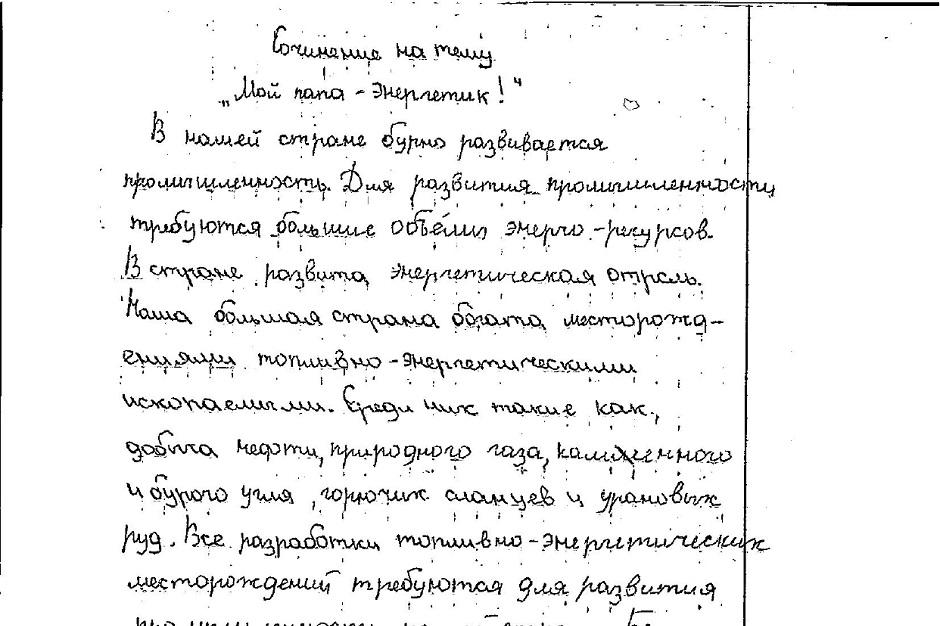 Сочинение на тему
„Мой папа - энергетик!“
В нашей стране бурно развивается
промышленность. Для развития промышленности
требуются большие объёмы энерго-ресурсов.
В стране развита энергетическая отрасль.
Наша большая страна богата месторожд-
ениями топливно-энергетическими
ископаемыми. Среди них такие как,
добыча нефти, природного газа, каменного
и бурого угля, горючих сланцев и урановых
руд. Все разработки топливно-энергетических
месторождений требуются для развития